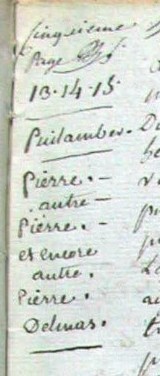 Cinquieme
Page
13-14-15
Puilambert.
Pierre.
autre
Pierre.
et encore
autre.
Pierre.
Delmas.